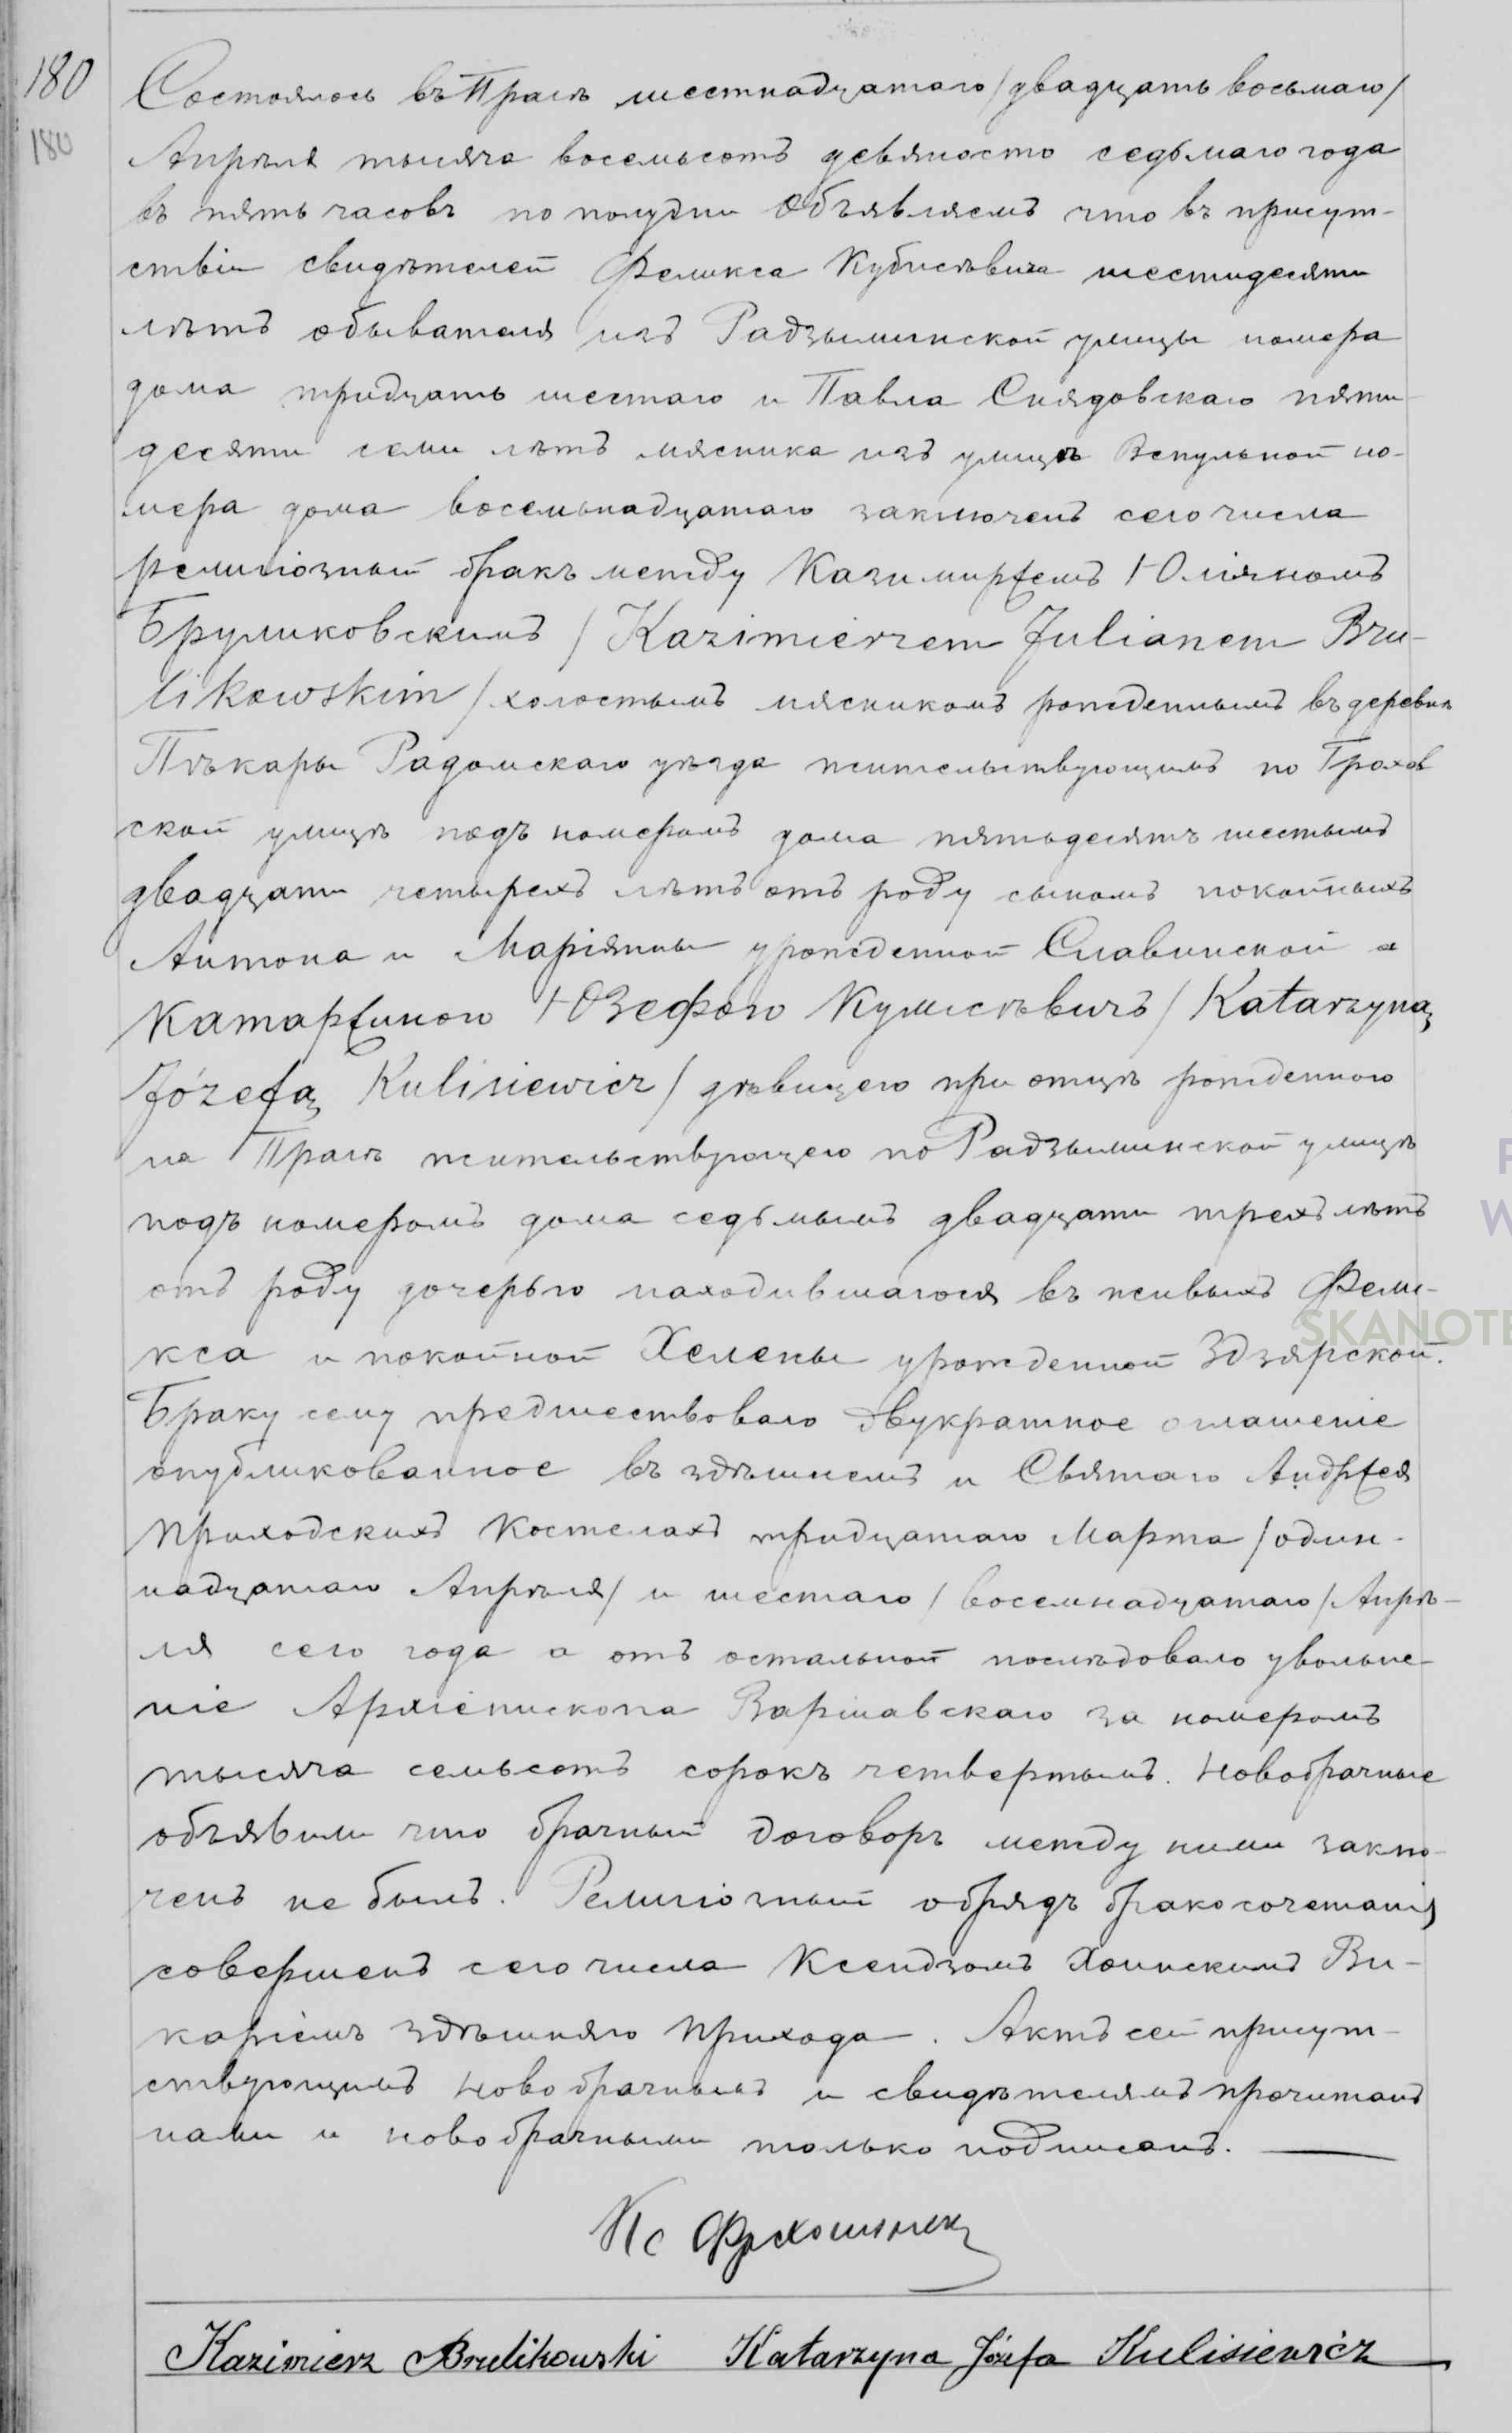 180
180
Состоялось въ Прагѣ шестнадцатаго /двадцать восьмаго/
Апрѣля тысяча восемьсотъ девяносто седьмаго года
въ пять часовъ по полудни Объявляемъ что въ присут-
ствіи свидѣтелей Феликса Кулисѣвича шестидесяти
лѣтъ обывателя изъ Радзыминской улицы номера
дома тридцать шестаго и Павла Снядовскаго пяти
десяти семи лѣтъ мясника изъ улицы Вспульной но-
мера дома восемьнадцатаго заключенъ сего числа
религіозный бракъ между Казимиржемъ Юліяномъ
Бруликовскимъ / Kazimierzem Julianem Bru-
likowskim / холостымъ мясникомъ рожденнымъ въ деревнѣ
Пѣкары Радомскаго уѣзда жительствующимъ по Грохов
ской улицѣ подъ номеромъ дома пятьдесятъ шестымъ
двадцати четырехъ лѣтъ отъ роду сыномъ покойныхъ
Антона и Маріянны урожденной Славинской а
Катаржиною Юзефою Кулисѣвичъ / Katarzyną
Józefą Kulisiewicz / дѣвицею при отцѣ рожденною
на Прагѣ жительствующею по Радзыминской улицѣ
подъ номеромъ дома седьмымъ двадцати трехъ лѣтъ
отъ роду дочерью находившагося въ живыхъ Фели-
кса и покойной Хелены урожденной Здзярской.
Браку сему предшествовало двукратное оглашеніе
опубликованное въ здѣшнемъ и Святаго Андржея
Приходскихъ Костелахъ тридцатаго Марта /один-
надцатаго Апрѣля/ и шестаго /восемнадцатаго/ Апрѣ-
ля сего года а отъ остальной послѣдовало увольне-
ніе Архіепископа Варшавскаго за номеромъ
тысяча семьсотъ сорокъ четвертымъ. Новобрачные
объявили что брачный договоръ между ними заклю-
ченъ не былъ. Религіозный обрядъ бракосочетанія
совершенъ сего числа Ксендзомъ Хоинскимъ Ви-
каріемъ здѣшняго Прихода. Актъ сей присут-
ствующимъ Новобрачнымъ и свидѣтелямъ прочитанъ
нами и новобрачными только подписанъ.
Кс
Kazimierz Brulikowski Katarzyna Józefa Kulisiewicz
SKANOTE